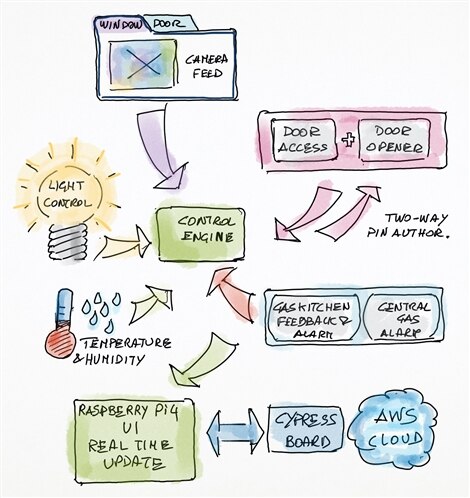 WINDOW DOOR
CAMERA
FEED
DOOR
ACCESS
+
DOOR
OPENER
LIGHT
CONTROL
CONTROL
ENGINE
TWO-WAY
PIN AUTHOR.
GAS KITCHEN
FEEDBACK &
ALARM
CENTRAL
GAS
ALARM
TEMPERATURE
& HUMIDITY
RASPBERRY Pi4
UI
REAL TIME
UPDATE
CYPRESS
BOARD
AWS
CLOUD